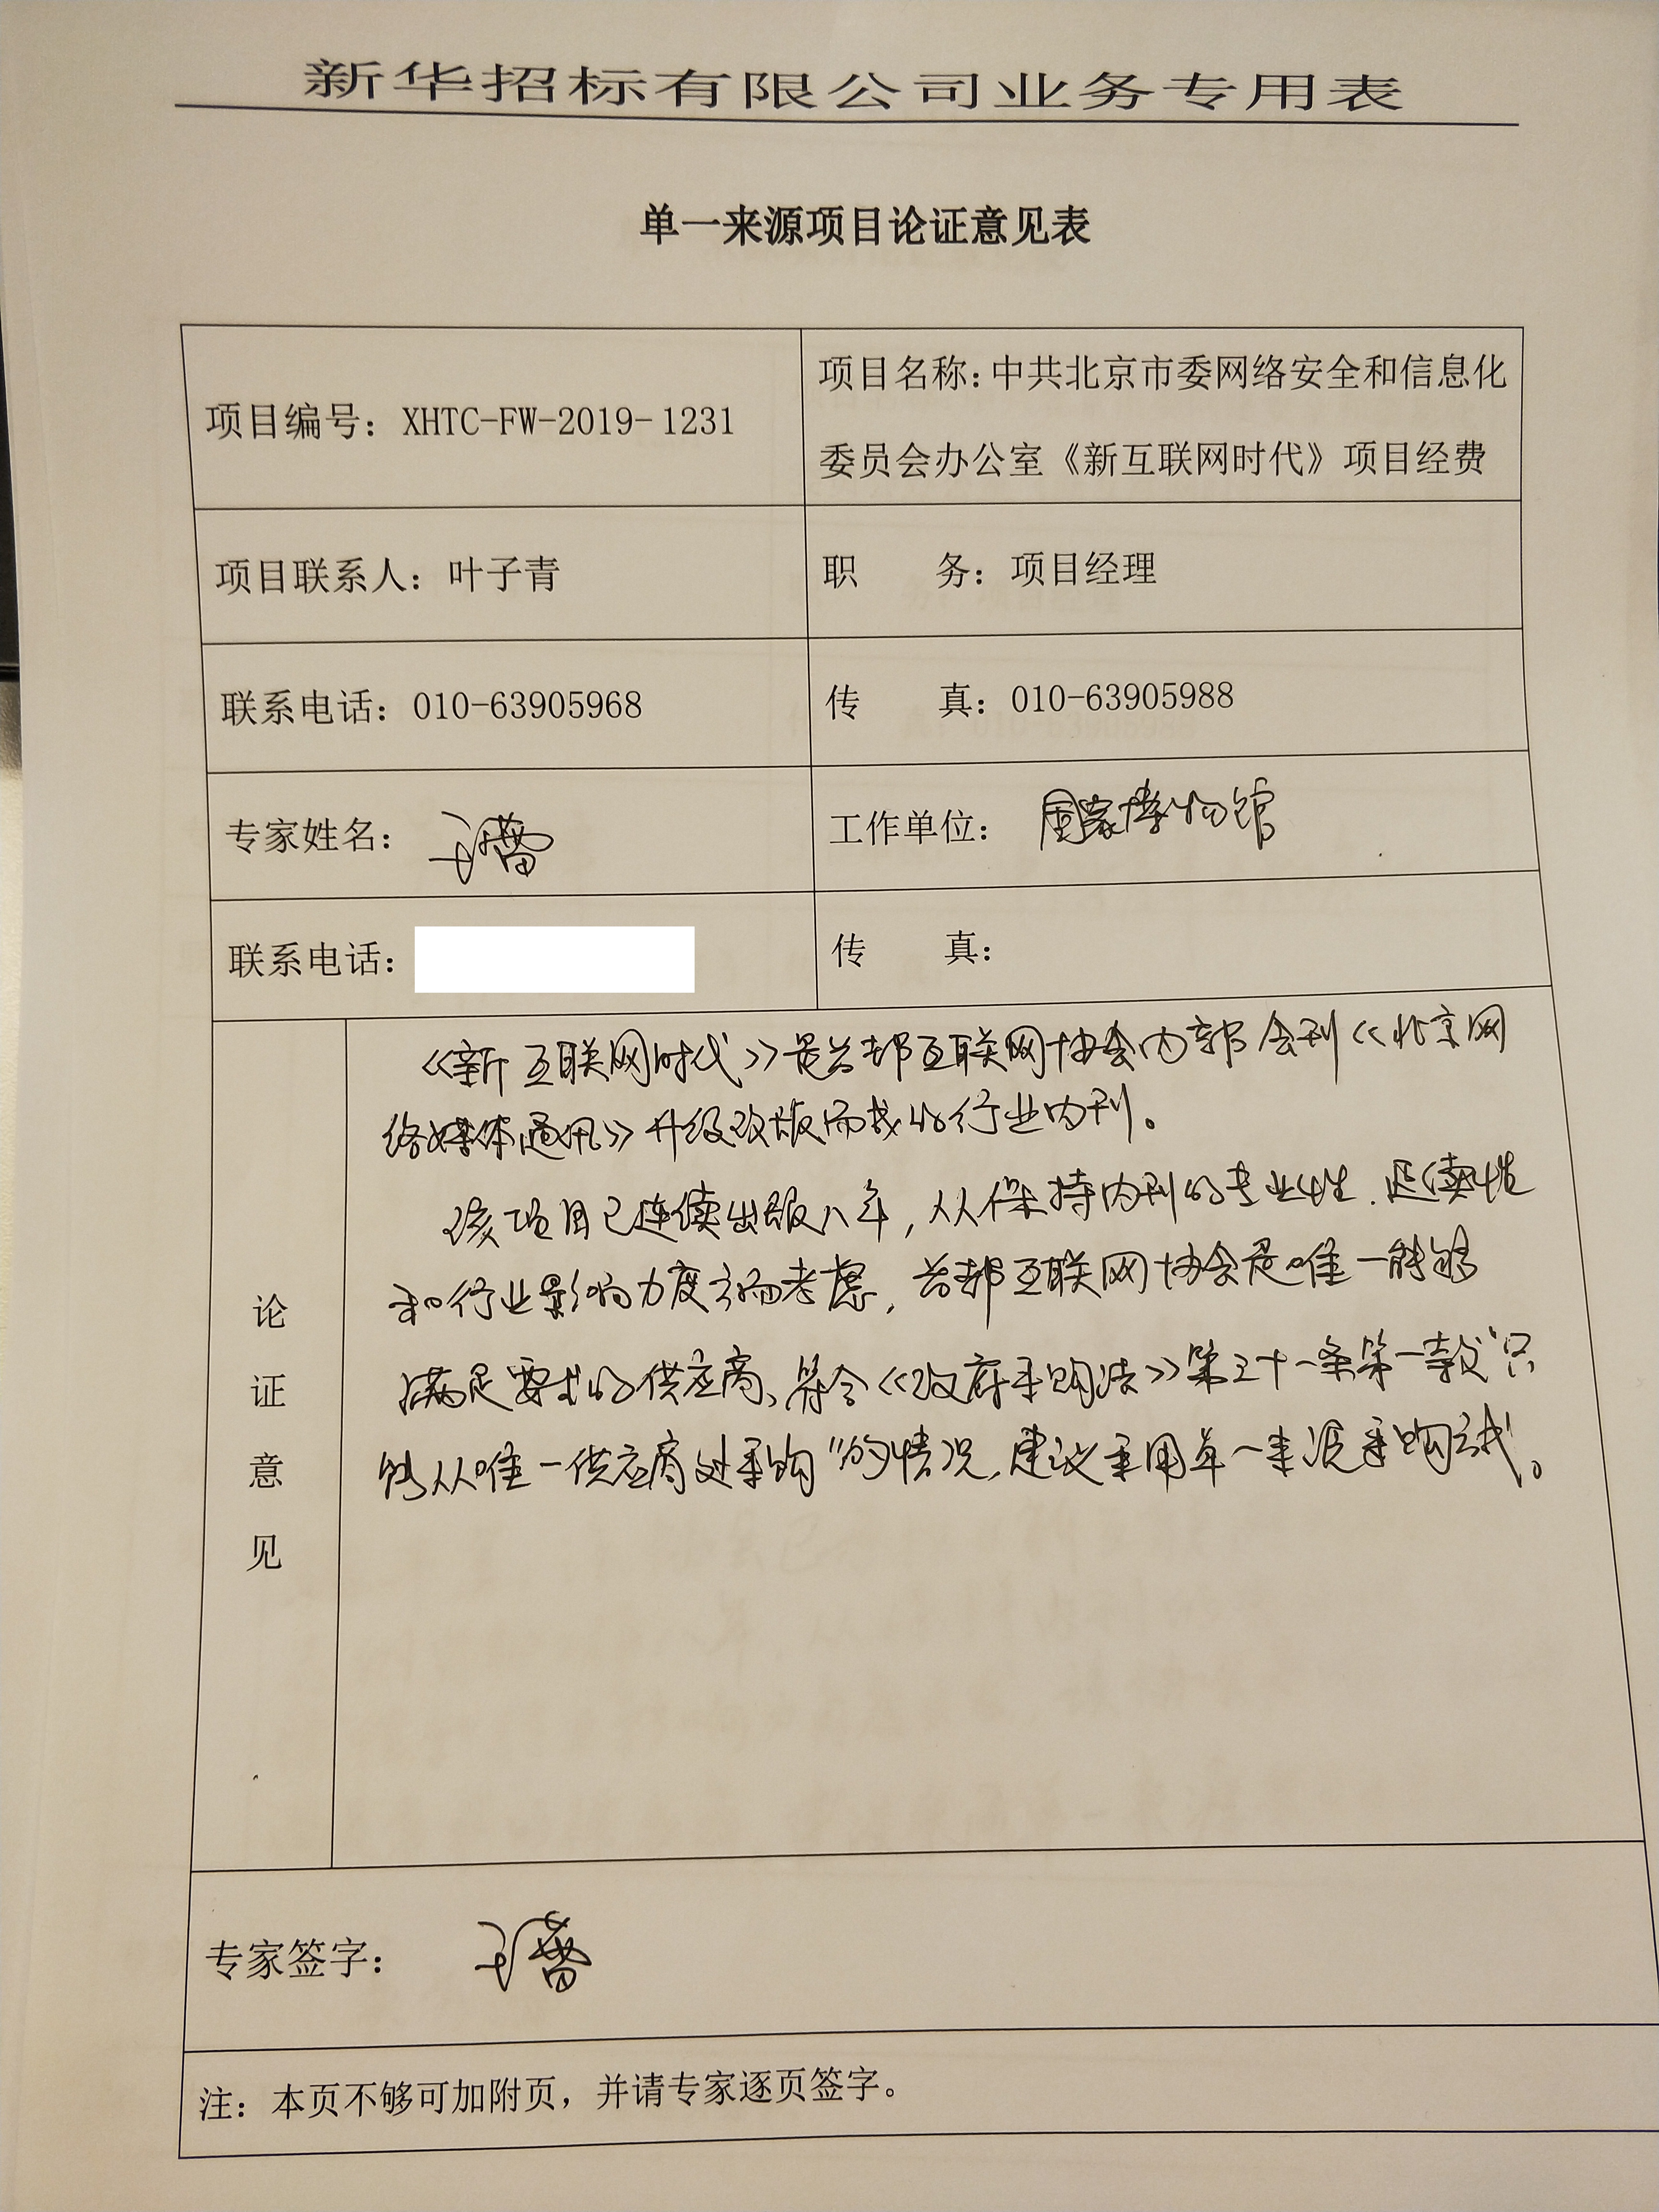 新华招标有限公司业务专用表
单一来源项目论证意见表
项目编号：XHTC-FW-2019-1231
项目名称：中共北京市委网络安全和信息化
委员会办公室《新互联网时代》项目经费
项目联系人：叶子青
职 务：项目经理
联系电话：010-63905968
传 真：010-63905988
专家姓名：
工作单位： 国家博物馆
联系电话：
传 真：
论
证
意
见
《新互联网时代》是首都互联网协会内部会刊《北京网
络媒体通讯》升级改版而成的行业内刊。
该项目已连续出版八年，从保持内刊的专业性、延续性
和行业影响力度方面考虑，首都互联网协会是唯一能够
满足要求的供应商、符合《政府采购法》第三十一条第一款“只
能从唯一供应商处采购”的情况，建议采用单一来源采购方式。
专家签字：
注：本页不够可加附页，并请专家逐页签字。